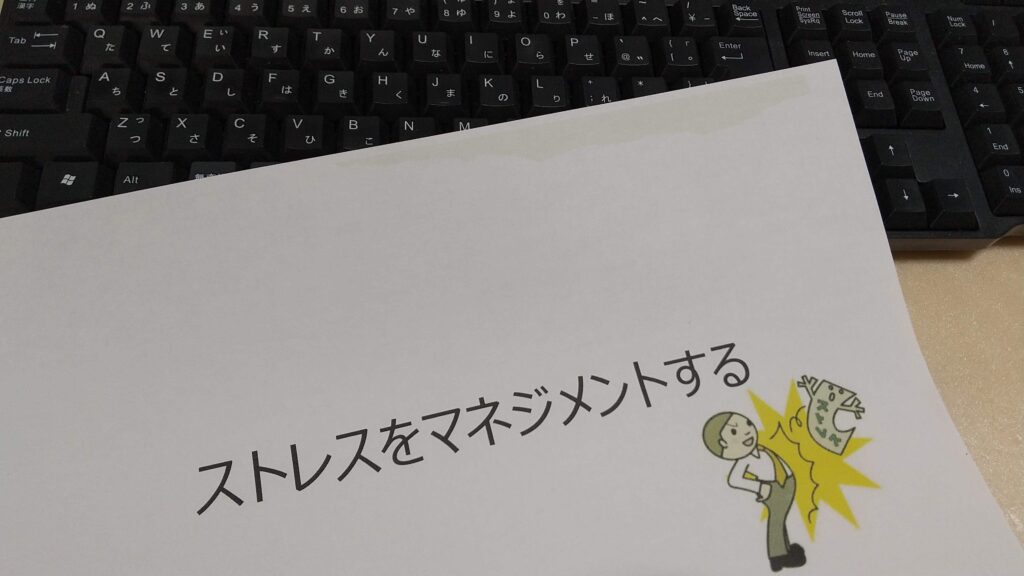 漢字 1ぬ 2ふ 3あ 4う 5え 6お 7や 8ゆ 9よ 0わ Back Space Print Screen SysRq Scroll Lock Pause Break Num Lock
Tab Q た W て E い R す T か Y ん U な I に O ら P せ Enter Insert Home Page Up 7 Home 8
Caps Lock A ち S と D し F は G き H く J ま K の L り End Page Down 4
Shift Z つ X さ C そ V ひ B こ N M 1 End
Alt 0 Ins
ストレスをマネジメントする